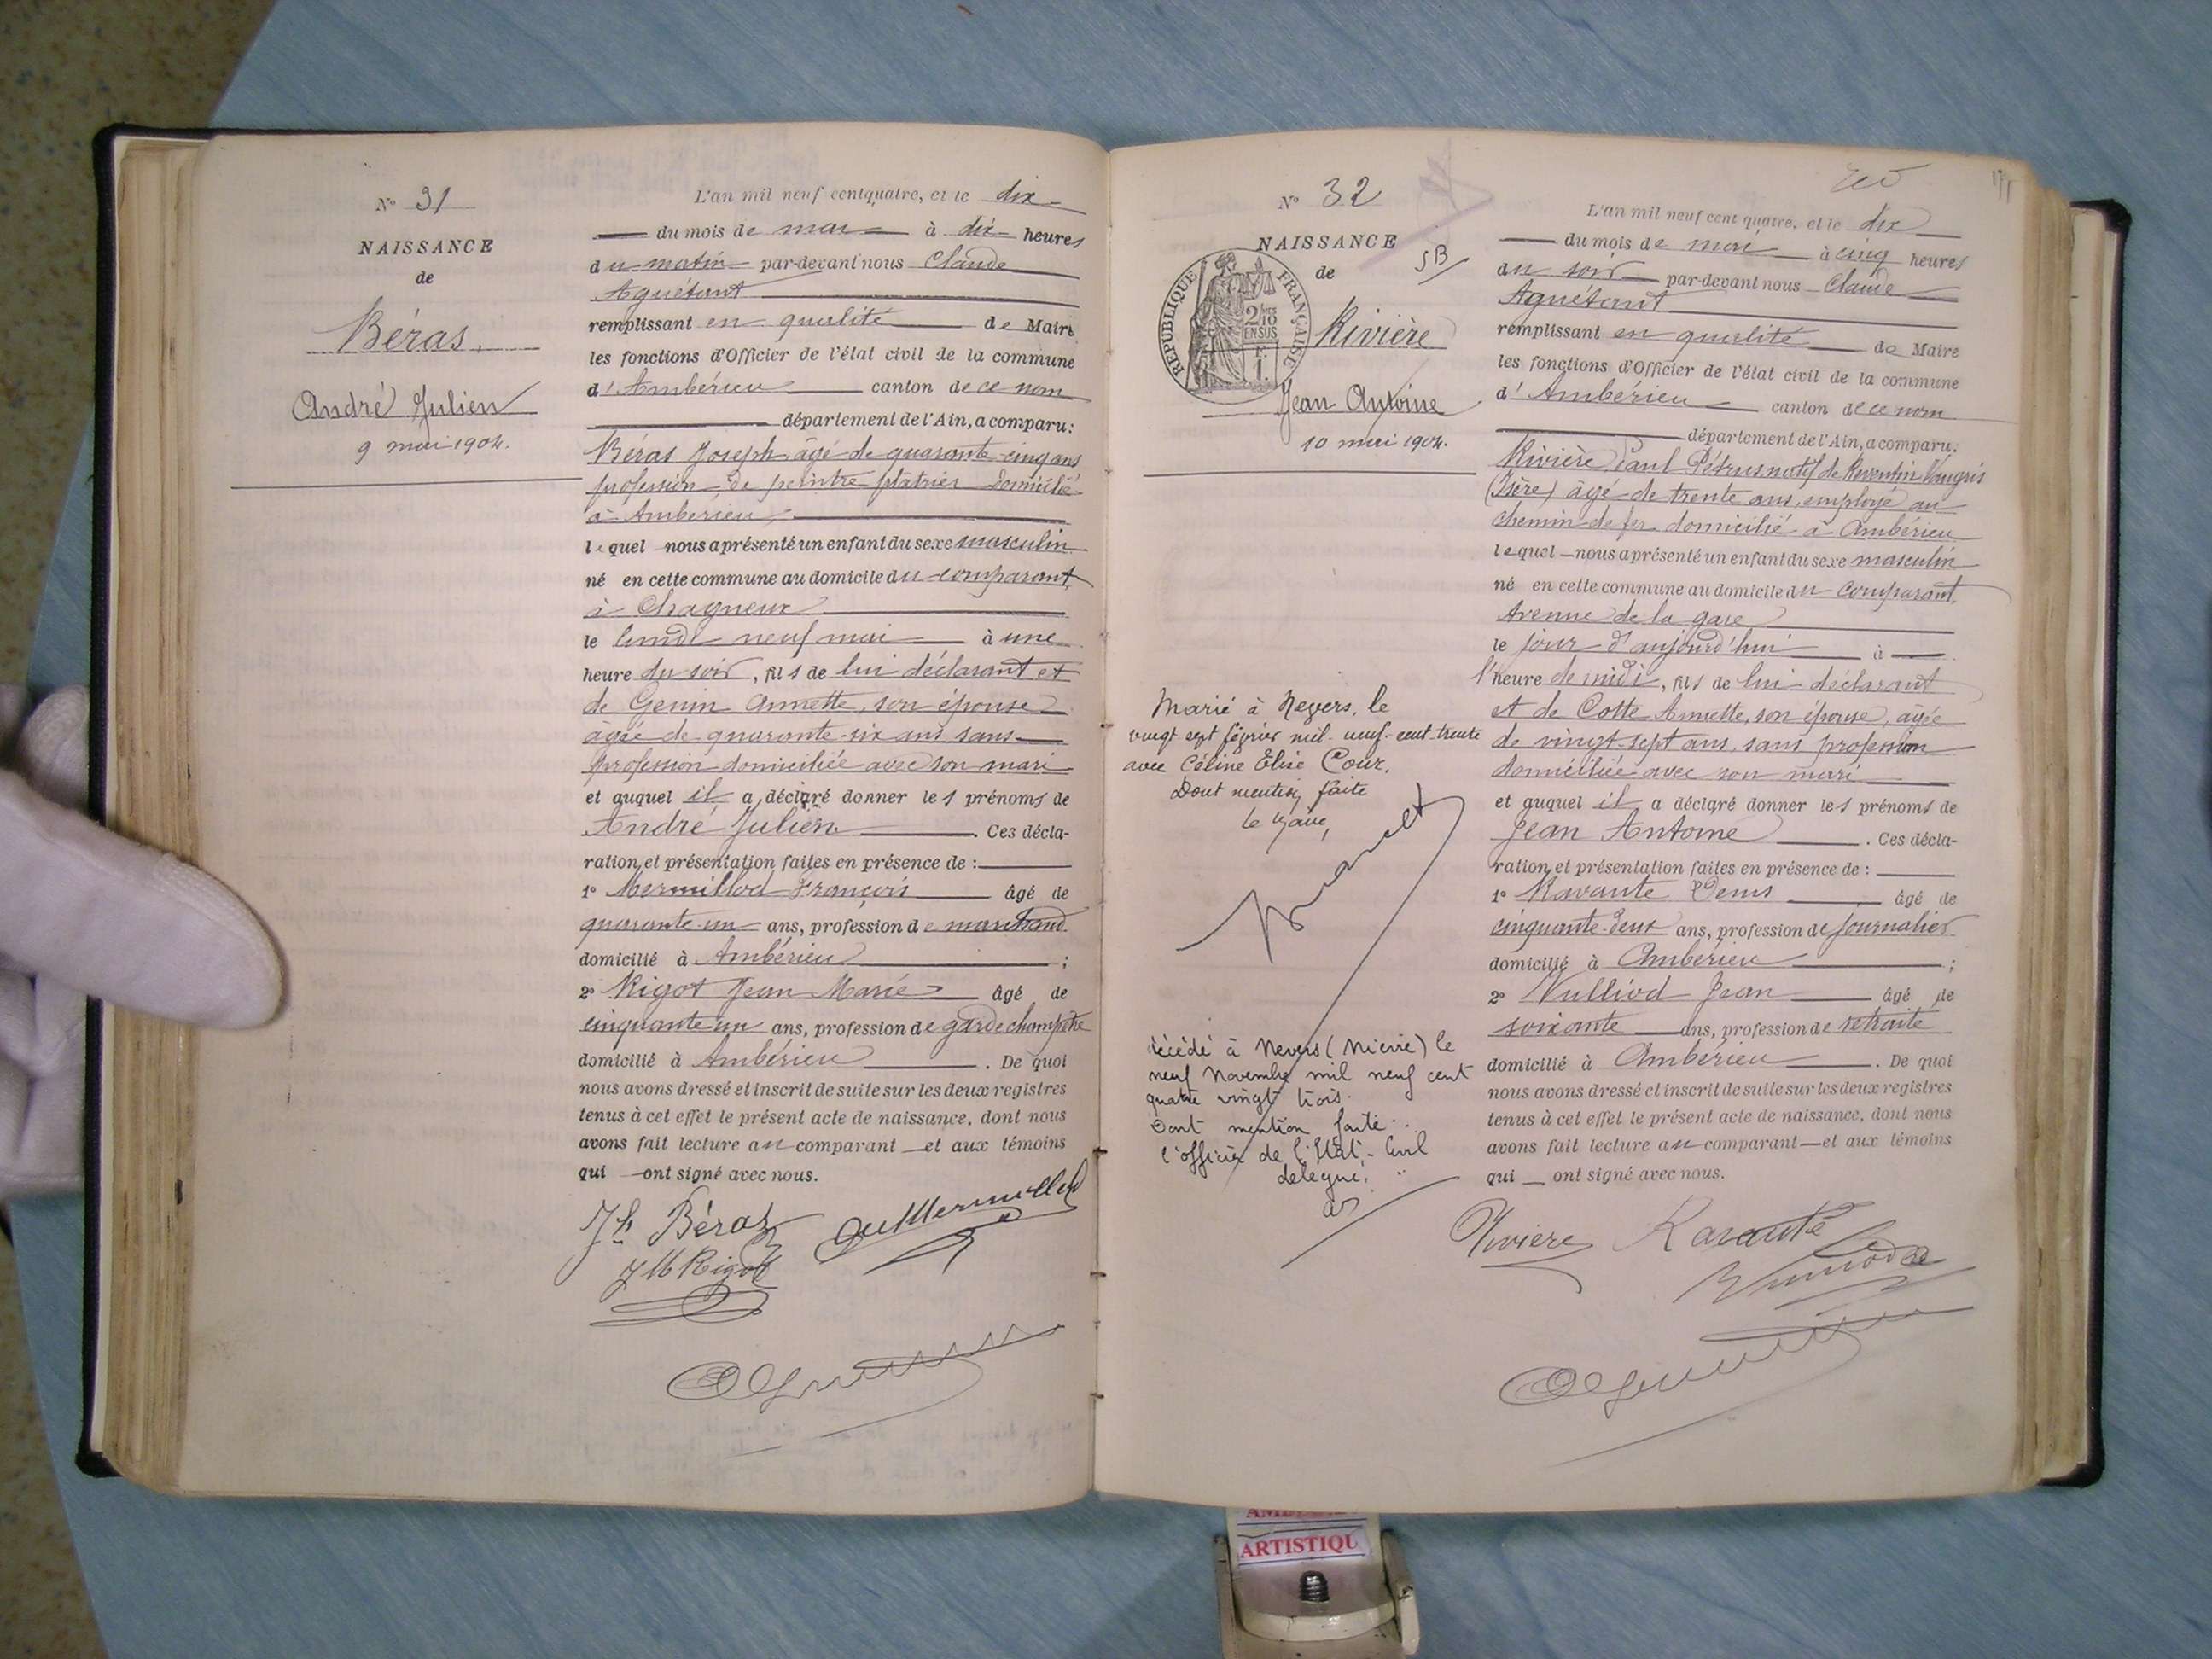 N° 31
NAISSANCE
de
Béras
André Julien
9 mai 1904.
L'an mil neuf cent quatre, et le dix
du mois de mai à dix heures
du matin par-devant nous Claude
Aguétant
remplissant en qualité de Maire
les fonctions d'Officier de l'état civil de la commune
d'Ambérieu canton de ce nom
département de l'Ain, a comparu:
Béras Joseph âgé de quarante-cinq ans
profession de peintre plâtrier domicilié
à Ambérieu
lequel nous a présenté un enfant du sexe masculin
né en cette commune au domicile du comparant
à Chagneux
le lundi neuf mai à une
heure du soir, fils de lui déclarant et
de Genin Annette, son épouse
âgée de quarante-six ans sans
profession domiciliée avec son mari
et auquel il a déclaré donner les prénoms de
André Julien. Ces décla-
ration et présentation faites en présence de :
1° Mermillod François âgé de
quarante-un ans, profession de marchand
domicilié à Ambérieu ;
2° Rigot Jean Marie âgé de
cinquante-un ans, profession de garde champêtre
domicilié à Ambérieu. De quoi
nous avons dressé et inscrit de suite sur les deux registres
tenus à cet effet le présent acte de naissance, dont nous
avons fait lecture au comparant et aux témoins
qui ont signé avec nous.
Jh Béras
JM Rigot
N° 32
NAISSANCE
de
RÉPUBLIQUE FRANÇAISE
2/10
EN SUS
Rivière
Jean Antoine
10 mai 1904.
L'an mil neuf cent quatre, et le dix
du mois de mai à cinq heures
du soir par-devant nous Claude
Aguétant
remplissant en qualité de Maire
les fonctions d'Officier de l'état civil de la commune
d'Ambérieu canton de ce nom
département de l'Ain, a comparu:
Rivière Paul Pétrus natif de Reventin Vaugris
(Isère) âgé de trente ans, employé au
chemin de fer domicilié à Ambérieu
lequel nous a présenté un enfant du sexe masculin
né en cette commune au domicile du comparant
Avenue de la gare
le jour d'aujourd'hui à
l'heure de midi, fils de lui déclarant
et de Cotte Annette, son épouse, âgée
de vingt-sept ans sans profession
domiciliée avec son mari
et auquel il a déclaré donner les prénoms de
Jean Antoine. Ces décla-
ration et présentation faites en présence de :
1° Ravante Denis âgé de
cinquante-deux ans, profession de journalier
domicilié à Ambérieu ;
2° Vulliod Jean âgé de
soixante ans, profession de retraité
domicilié à Ambérieu. De quoi
nous avons dressé et inscrit de suite sur les deux registres
tenus à cet effet le présent acte de naissance, dont nous
avons fait lecture au comparant et aux témoins
qui ont signé avec nous.
Rivière Ravante
Marié à Nevers, le
vingt sept février mil-neuf-cent-trente
avec Céline Elise Cour.
Dont mention faite
Le Maire,
décédé à Nevers (Nièvre) le
neuf Novembre mil neuf cent
quatre vingt trois.
Dont mention faite
l'officier de l'Etat-Civil
délégué,
ARTISTIQU